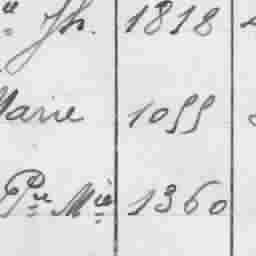 " Jh. 1818
Marie 1055
Pre Mie 1360